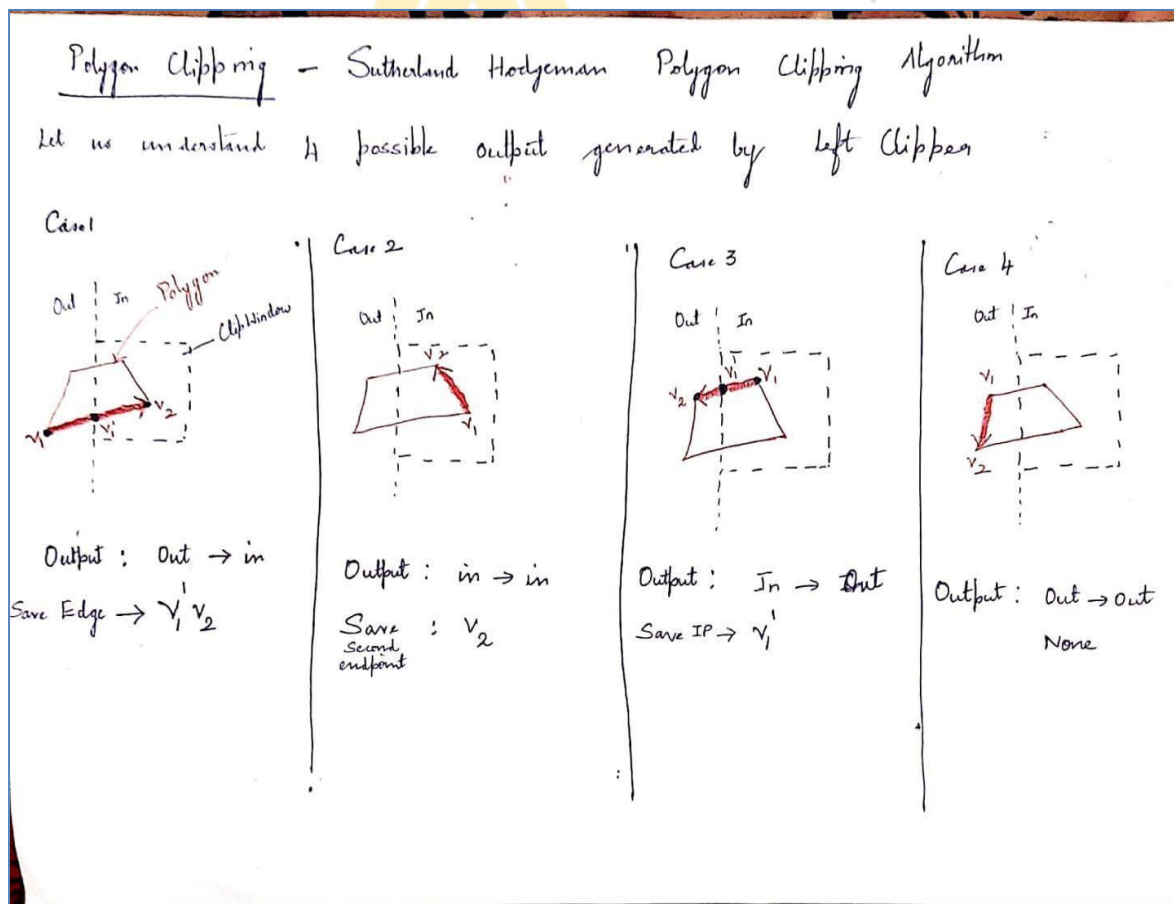 Polygon Clipping – Sutherland Hodgeman Polygon Clipping Algorithm
Let us understand 4 possible output generated by Left Clipper
Case1
Out In Polygon
Clip Window
V1 V1' V2
Output : Out → in
Save Edge → V1' V2
Case 2
Out In
V2
V1
Output : in → in
Save : V2
second
endpoint
Case 3
Out In
V2 V1' V1
Output : In → Out
Save IP → V1'
Case 4
Out In
V1
V2
Output : Out → Out
None